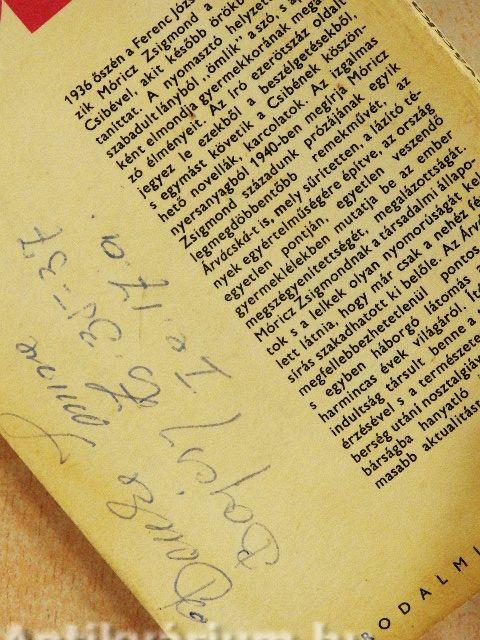 1936 őszén a Ferenc Józs
zik Móricz Zsigmond a
Csibével, akit később örökb
taníttat. A nyomasztó helyzet
szabadult lányból „ömlik" a szó, s a
ként elmondja gyermekkorának mega
zó élményeit. Az író ezerötszáz oldalt
jegyez le ezekből a beszélgetésekből,
s egymást követik a Csibének köszön-
hető novellák, karcolatok. Az izgalmas
nyersanyagból 1940-ben megírja Móricz
Zsigmond századunk prózájának egyik
legmegdöbbentőbb remekművét, az
Árvácská-t is, mely sűrítetten, a lázító té-
nyek egyértelműségére építve, az ország
egyetlen pontján, egyetlen veszendő
gyermeklélekben mutatja be az ember
megszégyenítettségét, megalázottságát.
Móricz Zsigmondnak a társadalmi állapo-
tok s a lelkek olyan nyomorúságát ke
lett látnia, hogy már csak a nehéz fé
sírás szakadhatott ki belőle. Az Árv
megfellebbezhetetlenül pontos
s egyben háborgó látomás a
harmincas évek világáról. Író
indultság társult benne a
érzésével s a természete
berség utáni nosztalgiáv
bárságba hanyatló
masabb aktualitást
35-37
17.a.
ODALMI
Antikvárium.hu